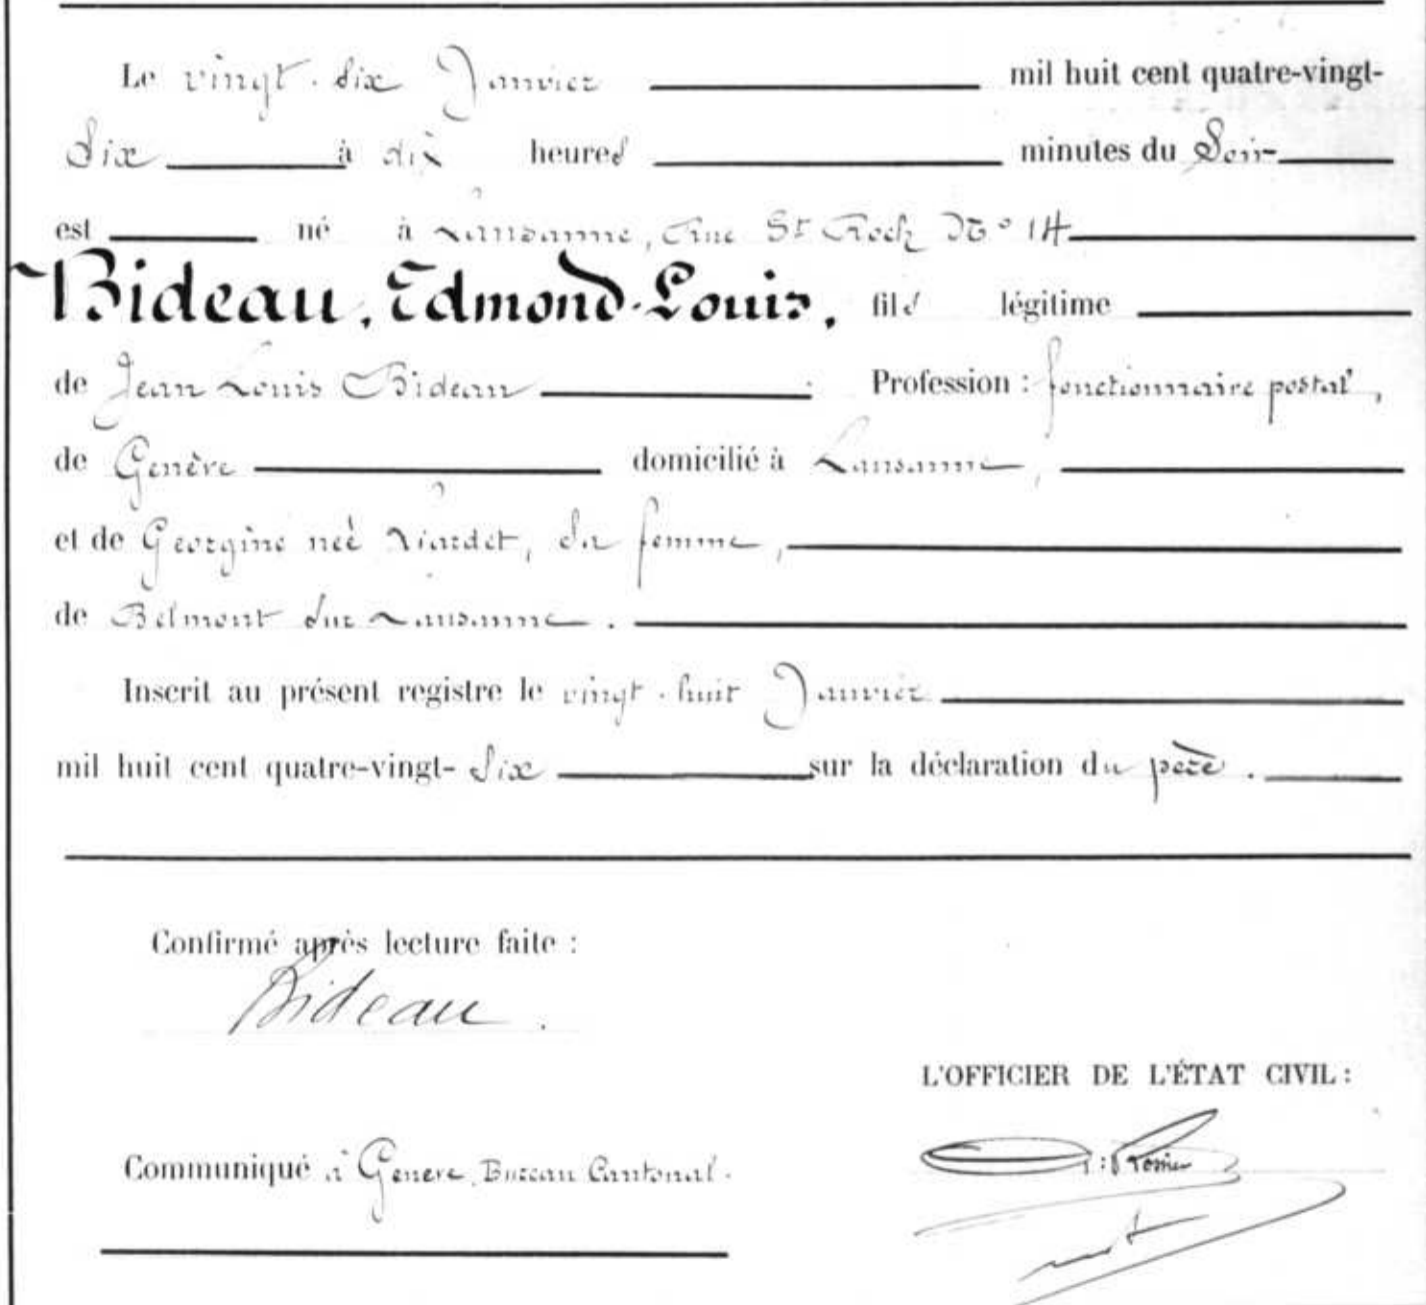 Le vingt-six Janvier mil huit cent quatre-vingt-
six à dix heures minutes du Soir
est né à Lausanne, rue St Roch No 14
Bideau, Edmond-Louis, fils légitime
de Jean Louis Bideau Profession : fonctionnaire postal,
de Genève domicilié à Lausanne,
et de Georgine neé Liardet, sa femme,
de Belmont sur Lausanne.
Inscrit au présent registre le vingt-huit Janvier
mil huit cent quatre-vingt- six sur la déclaration du père.
Confirmé après lecture faite :
Bideau.
L'OFFICIER DE L'ÉTAT CIVIL :
Communiqué à Genève, Bureau Cantonal.